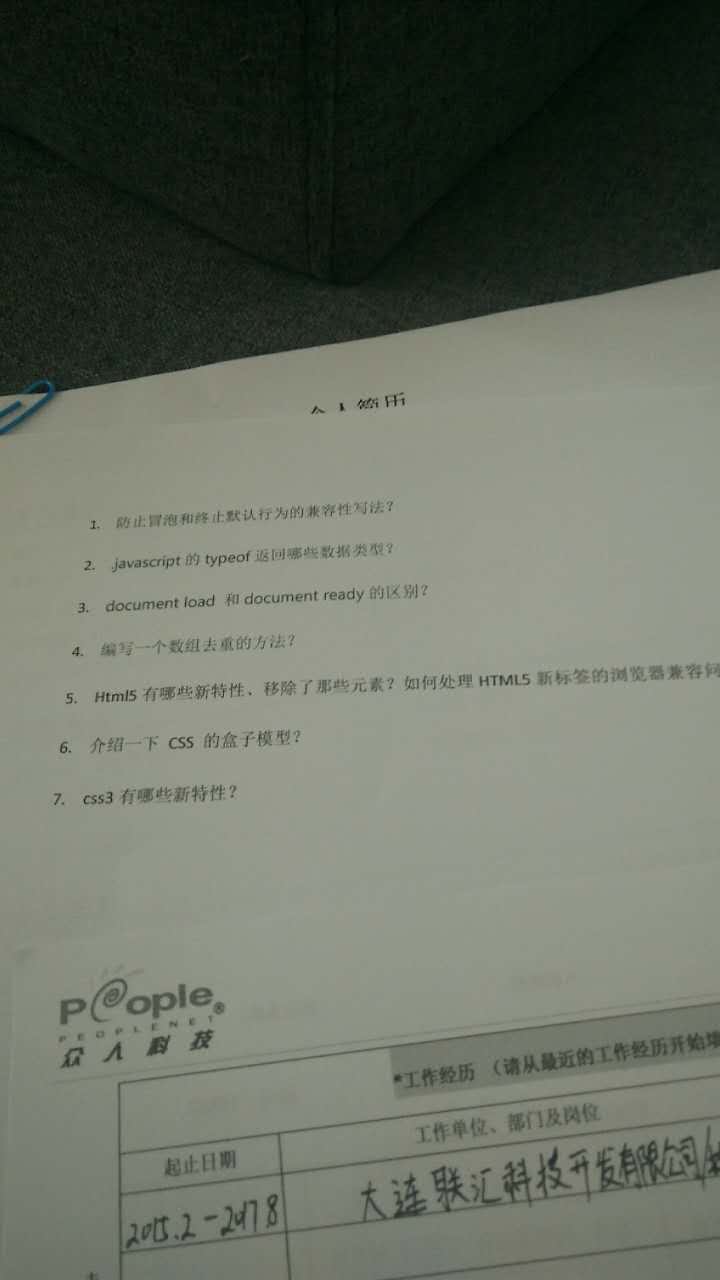 个人简历
1. 防止冒泡和终止默认行为的兼容性写法？
2. .javascript 的 typeof 返回哪些数据类型？
3. document load 和 document ready 的区别？
4. 编写一个数组去重的方法？
5. Html5 有哪些新特性、移除了那些元素？如何处理 HTML5 新标签的浏览器兼容问
6. 介绍一下 CSS 的盒子模型？
7. css3 有哪些新特性？
People®
PEOPLENET
众人科技
*工作经历 （请从最近的工作经历开始填
起止日期 工作单位、部门及岗位
2015.2-2017 8 大连联汇科技开发有限公司/